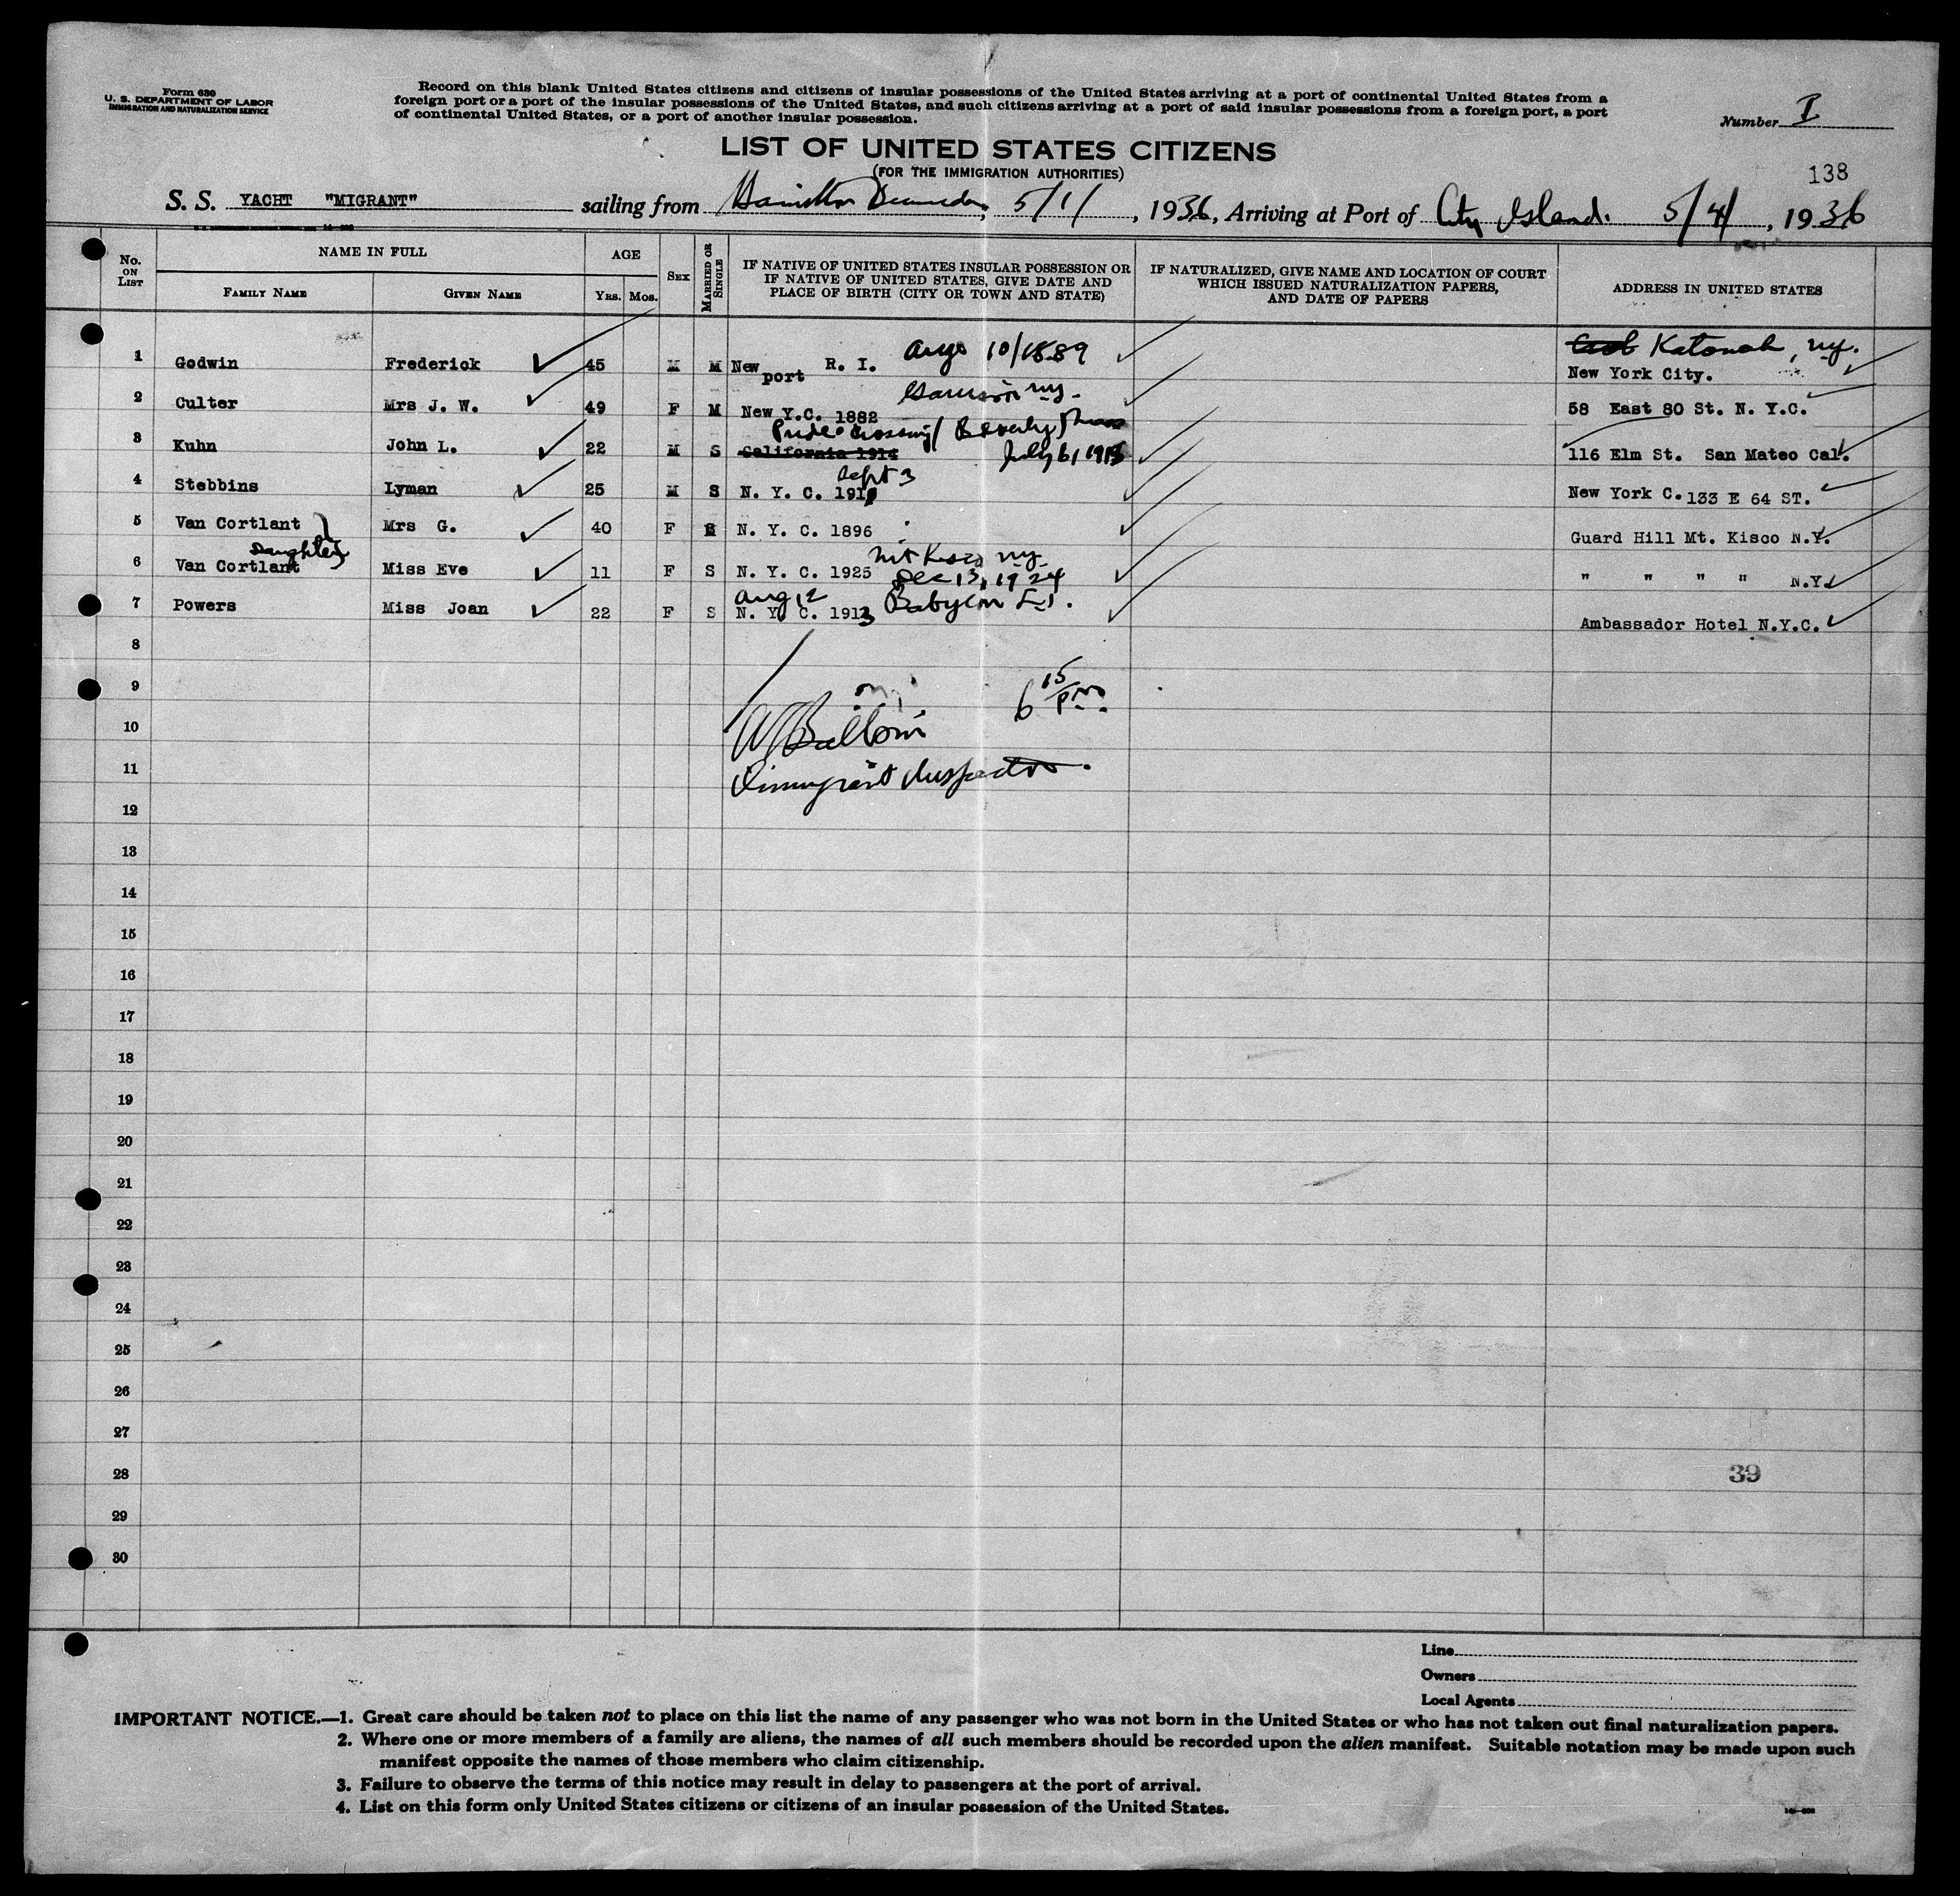 Form 630
U. S. DEPARTMENT OF LABOR
IMMIGRATION AND NATURALIZATION SERVICE
Record on this blank United States citizens and citizens of insular possessions of the United States arriving at a port of continental United States from a
foreign port or a port of the insular possessions of the United States, and such citizens arriving at a port of said insular possessions from a foreign port, a port
of continental United States, or a port of another insular possession.
Number I
LIST OF UNITED STATES CITIZENS
(FOR THE IMMIGRATION AUTHORITIES)
138
S. S. YACHT "MIGRANT" sailing from Hamilton Bermuda, 5/1/, 1936, Arriving at Port of City Island. 5/4/, 1936
No. ON LIST
NAME IN FULL
FAMILY NAME GIVEN NAME
AGE
YRS. MOS.
SEX
MARRIED OR SINGLE
IF NATIVE OF UNITED STATES INSULAR POSSESSION OR
IF NATIVE OF UNITED STATES, GIVE DATE AND
PLACE OF BIRTH (CITY OR TOWN AND STATE)
IF NATURALIZED, GIVE NAME AND LOCATION OF COURT
WHICH ISSUED NATURALIZATION PAPERS,
AND DATE OF PAPERS
ADDRESS IN UNITED STATES
Katonah, N.Y.
1 Godwin Frederick 45 M M Newport R. I. 10/1889 New York City.
Garrison N.Y.
2 Culter Mrs J. W. 49 F M New Y.C. 1882 58 East 80 St. N. Y.C.
Prides Crossing/ Beverly Mass
3 Kuhn John L. 22 M S California 1914 July 6, 1913 116 Elm St. San Mateo Cal.
Sept 3
4 Stebbins Lyman 25 M S N. Y. C. 191 New York C. 133 E 64 ST.
5 Van Cortlant Mrs G. 40 F N. Y. C. 1896 Guard Hill Mt. Kisco N.Y.
Daughter Mt Kisco N.Y.
6 Van Cortlant Miss Eve 11 F S N. Y. C. 1925 Dec 13, 1924 " " " " N.Y.
Aug 12 Babylon L.I.
7 Powers Miss Joan 22 F S N. Y. C. 1913 Ambassador Hotel N.Y.C.
8
9
6 15/PM
10
11 Immigrant Inspector.
12
13
14
15
16
17
18
19
20
21
22
23
24
25
26
27
28 39
29
30
Line
Owners
Local Agents
IMPORTANT NOTICE.—1. Great care should be taken not to place on this list the name of any passenger who was not born in the United States or who has not taken out final naturalization papers.
2. Where one or more members of a family are aliens, the names of all such members should be recorded upon the alien manifest. Suitable notation may be made upon such
manifest opposite the names of those members who claim citizenship.
3. Failure to observe the terms of this notice may result in delay to passengers at the port of arrival.
4. List on this form only United States citizens or citizens of an insular possession of the United States.